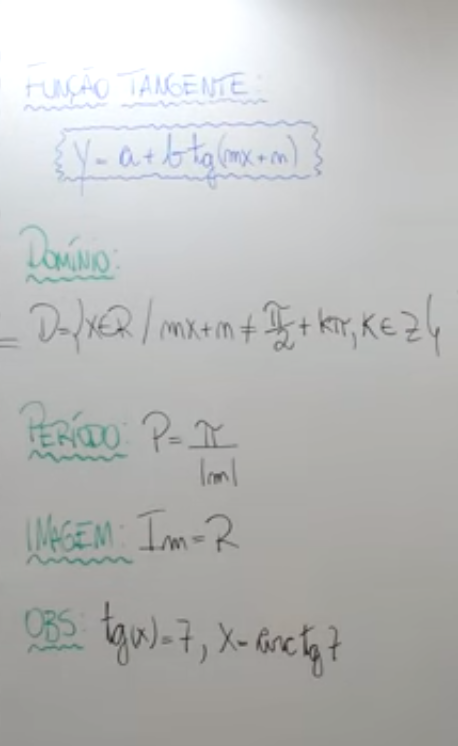 FUNÇÃO TANGENTE:
y = a + b tg(mx+n)
DOMÍNIO:
= D={x∈R / mx+n ≠ π/2 + kπ, K∈Z}
PERÍODO: P= π/|m|
IMAGEM: Im=R
OBS: tg(x)=7, x=arctg7